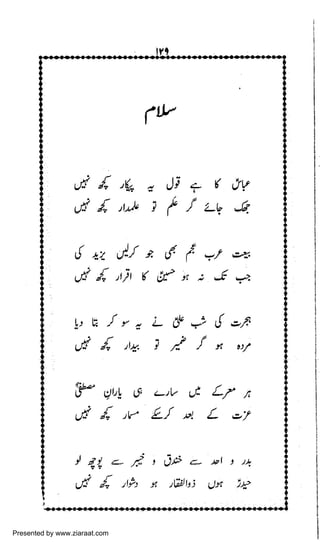 ۱۲۹
سلام
عباسؑ کا ہے قول یہ پیکار کچھ نہیں
جھک جائے گر علم تو علمدار کچھ نہیں
بیعت عرب عجم بھی جو کرلیں یزید کی
جب تک نہ ہو حسینؑ کا اقرار کچھ نہیں
ہجرت کی شب علیؑ نے یہ سو کر بتا دیا
مردہ ہو گر ضمیر تو بیدار کچھ نہیں
ہر معرکے میں سارے ہی یارانِ مصطفیؐ
عزت کے بعد کرسکے مسمار کچھ نہیں
بدر و احد سے خندق و خیبر سے پوچھ لو
حیدرؑ ہوں ذوالفقار ہو دشوار کچھ نہیں
Presented by www.ziaraat.com